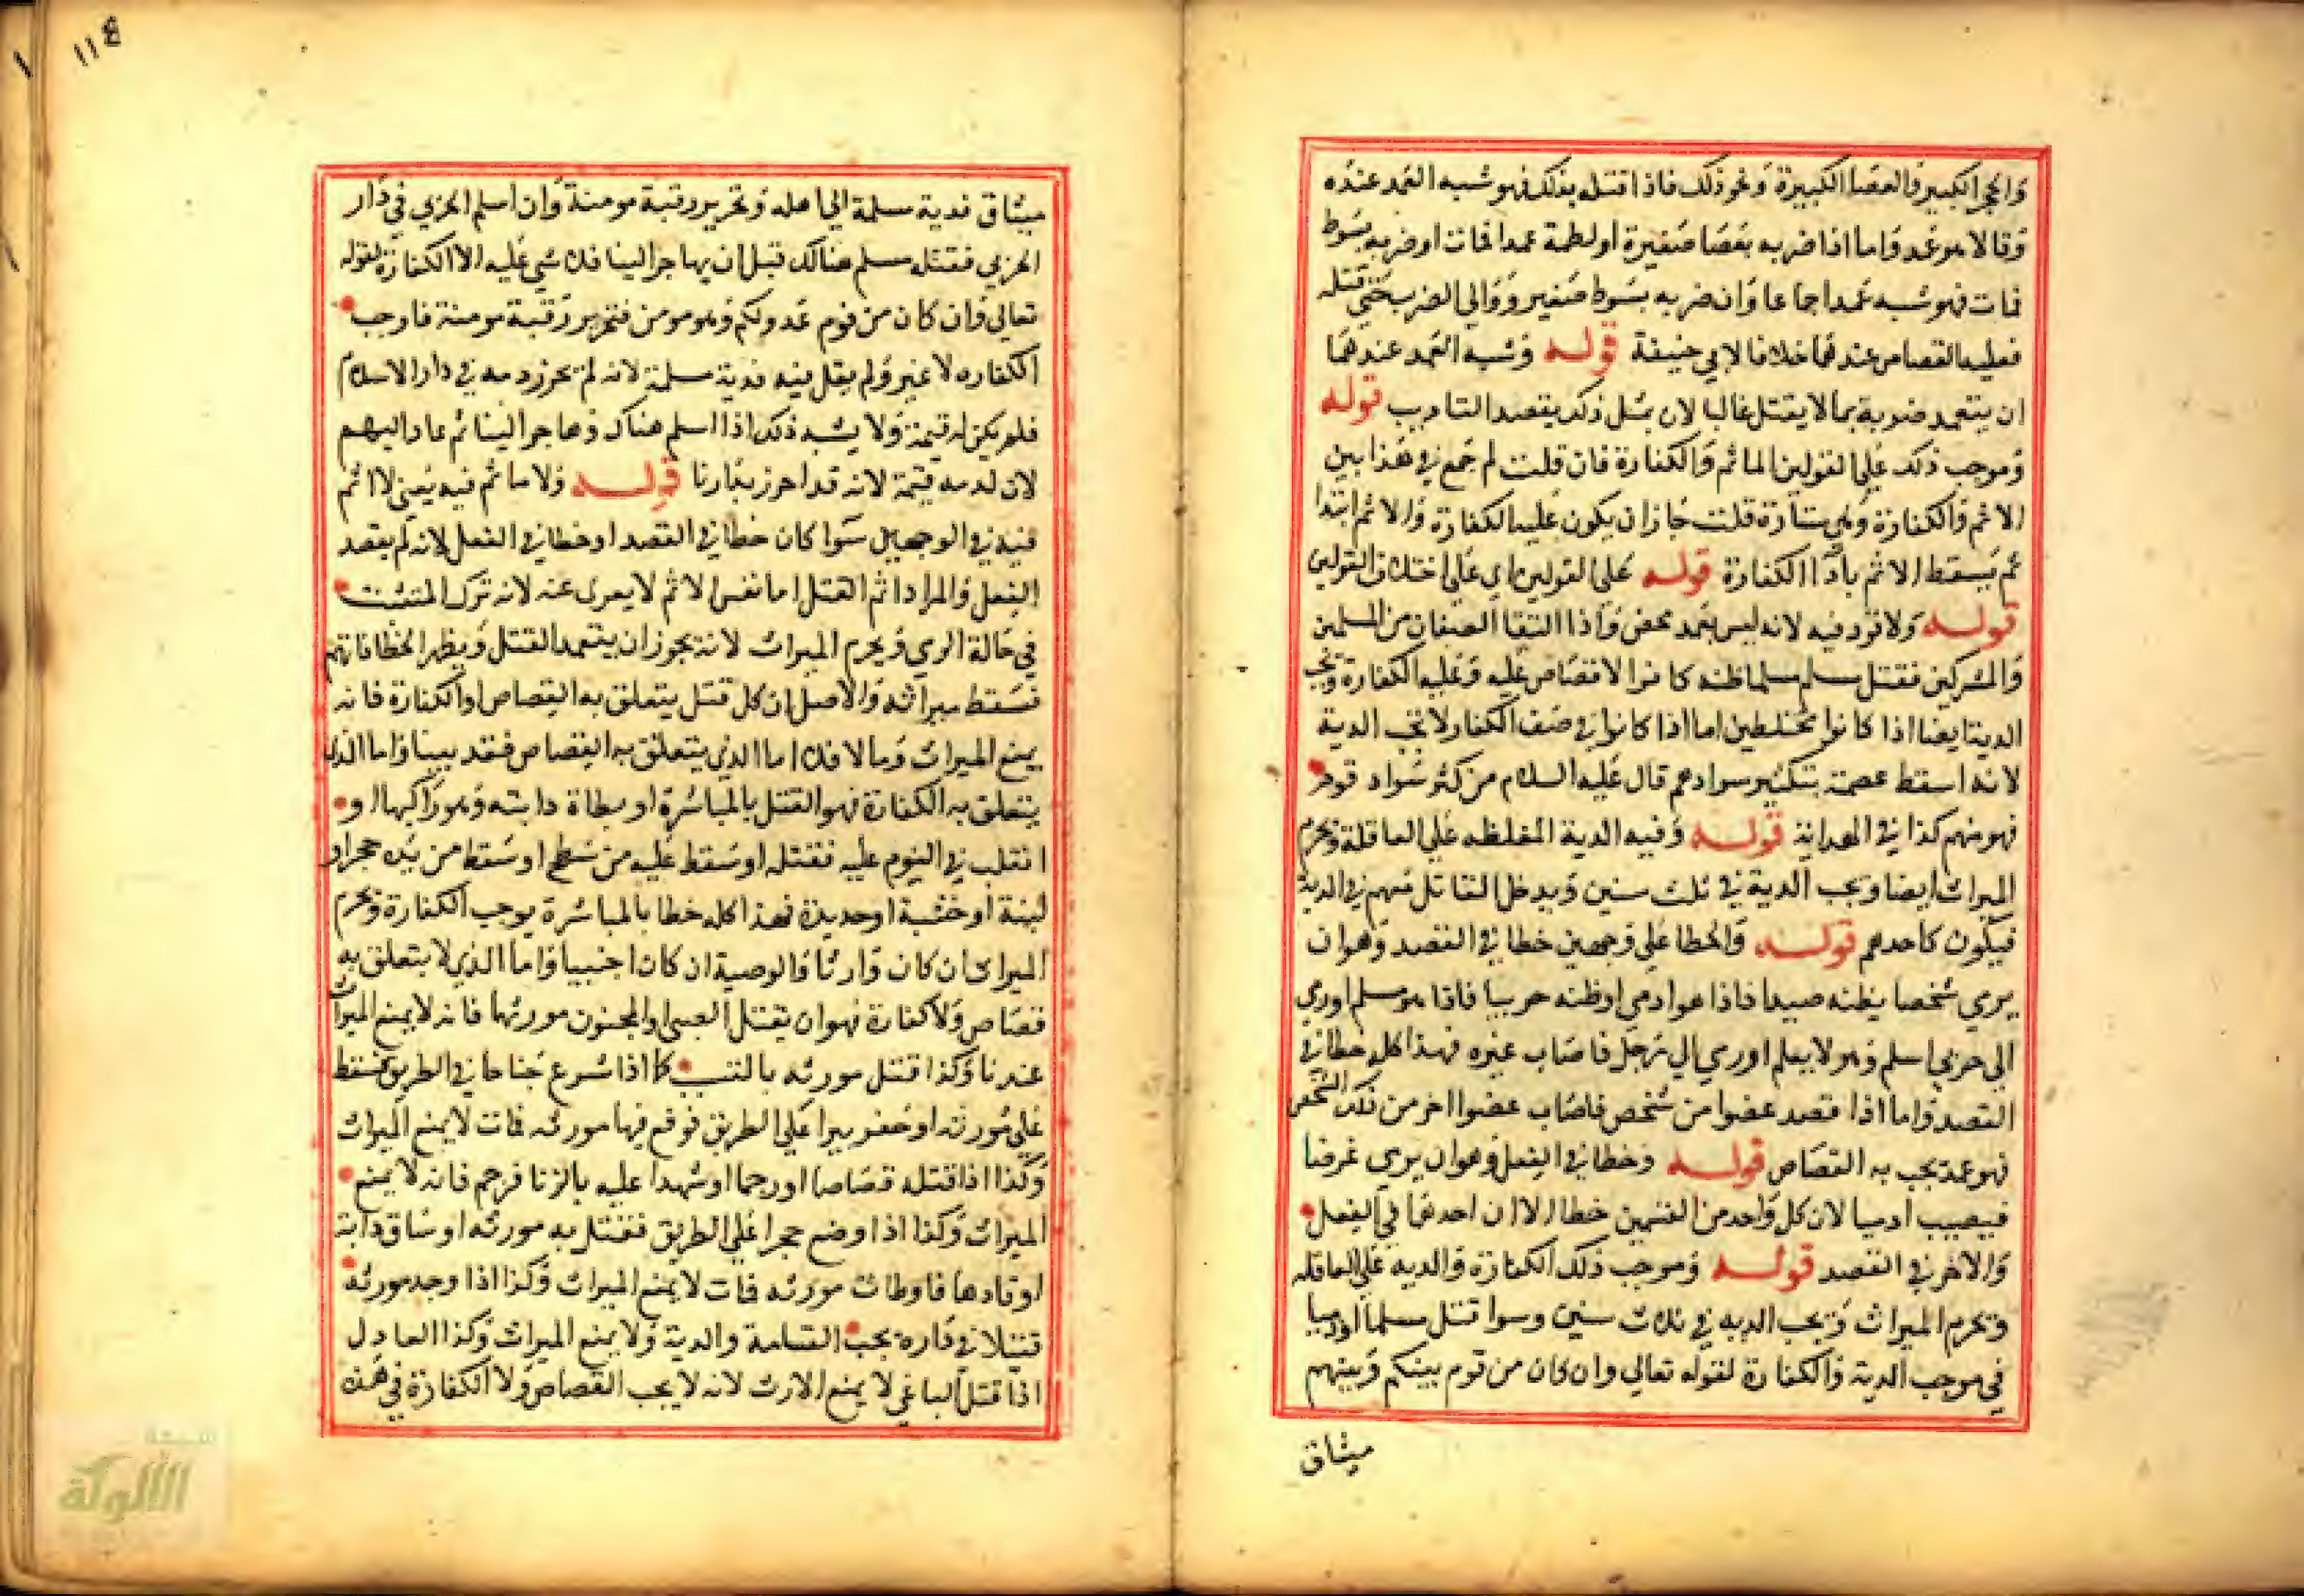 والحجر الكبير والعصا الكبيرة ونحو ذلك فاذا قتله بذلك فهو شبه العمد عنده
وقالا هو عمد واما اذا ضربه بعصا صغيرة او لطمة عمدا فمات او ضربه بسوط
فمات فهو شبه عمد اجماعا وان ضربه بسوط صغير ووالي الضرب حتى قتله
فعليه القصاص عندهما خلافا لابي حنيفة قوله وشبه العمد عندهما
ان يتعمد ضربه بما لا يقتل غالبا لان بمثل ذلك يقصد التاديب قوله
وموجب ذلك علي القولين الماثم والكفارة فان قلت لم جمع في هذا بين
الاثم والكفارة وهي ستارة قلت جاز ان يكون عليه الكفارة والاثم ابتدا
ثم يسقط الاثم بادا الكفارة قوله علي القولين اي علي اختلاف القولين
قوله ولا قود فيه لانه ليس بعمد محض واذا التقا الصفان من المسلمين
والمشركين فقتل مسلم مسلما ظنه كافرا لا قصاص عليه وعليه الكفارة وتجب
الدية ايضا اذا كانوا مختلطين اما اذا كانوا في صف الكفار لا تجب الدية
لانه اسقط عصمته بتكثير سوادهم قال عليه السلام من كثر سواد قوم
فهو منهم كذا في الهداية قوله وفيه الدية المغلظه علي العاقلة ويحرم
الميراث ايضا وتجب الدية في ثلث سنين ويدخل القاتل معهم في الدية
فيكون كاحدهم قوله والخطا علي وجهين خطا في القصد وهو ان
يرمي شخصا يظنه صيدا فاذا هو ادمي او ظنه حربيا فاذا هو مسلم او رمي
الي حربي اسلم وهو لا يعلم او رمي الي رجل فاصاب غيره فهذا كله خطا في
القصد واما اذا قصد عضوا من شخص فاصاب عضوا اخر من ذلك الشخص
فهو عمد يجب به القصاص قوله وخطا في الفعل وهو ان يرمي غرضا
فيصيب ادميا لان كل واحد من القسمين خطا الا ان احدهما في الفعل
والاخر في القصد قوله وموجب ذلك الكفارة والديه علي العاقله
ويحرم الميراث وتجب الديه في ثلاث سنين وسوا قتل مسلما او ذميا
في موجب الدية والكفارة لقوله تعالي وان كان من قوم بينكم وبينهم
ميثاق
١١٤
ميثاق فدية مسلمة الي اهله وتحرير رقبة مومنة وان اسلم الحربي في دار
الحربي فقتله مسلم هنالك قبل ان يهاجر الينا فلا شي عليه الا الكفارة لقوله
تعالي فان كان من قوم عدو لكم وهو مومن فتحرير رقبة مومنة فاوجب
الكفاره لا غير ولم يقل فيه فدية مسلمة لانه لم يحرز دمه في دار الاسلام
فلم يكن له قيمة ولا يشبه ذلك اذا اسلم هناك وهاجر الينا ثم عاد اليهم
لان لدمه قيمة لانه قد احرز بدارنا قوله ولا ماثم فيه يعني لا اثم
فيه في الوجهين سوا كان خطا في القصد او خطا في الفعل لانه لم يقصد
الفعل والمراد اثم القتل اما نفس الاثم لا يعري عنه لانه ترك التثبت
في حالة الرمي ويحرم الميراث لانه يجوز ان يتعمد القتل ويظهر الخطا فاتهم
فسقط ميراثه والاصل ان كل قتل يتعلق به القصاص او الكفارة فانه
يمنع الميراث وما لا فلا اما الذي يتعلق به القصاص فقد بينا واما الذي
يتعلق به الكفارة فهو القتل بالمباشرة او بطاة دابته وهو راكبها او
انقلب في النوم عليه فقتله او سقط عليه من سطح او سقط من يده حجر او
لبنة او خشبة او حديدة فهذا كله خطا بالمباشرة يوجب الكفارة ويحرم
الميراث ان كان وارثا والوصية ان كان اجنبيا واما الذي لا يتعلق به
قصاص ولا كفارة فهو ان يقتل الصبي او المجنون مورثهما فانه لا يمنع الميراث
عندنا وكذا قتل مورثه بالتسبب كما اذا شرع جناحا في الطريق فسقط
علي مورثه او حفر بيرا علي الطريق فوقع فيها مورثه فمات لا يمنع الميراث
وكذا اذا قتله قصاصا او رجما او شهدا عليه بالزنا فرجم فانه لا يمنع
الميراث وكذا اذا وضع حجرا علي الطريق فقتل به مورثه او ساق دابة
او قادها فاوطات مورثه فمات لا يمنع الميراث وكذا اذا وجد مورثه
قتيلا في داره يجب القسامة والدية ولا يمنع الميراث وكذا العادل
اذا قتل الباغي لا يمنع الارث لانه لا يجب القصاص ولا الكفارة في هذه
الألوكة